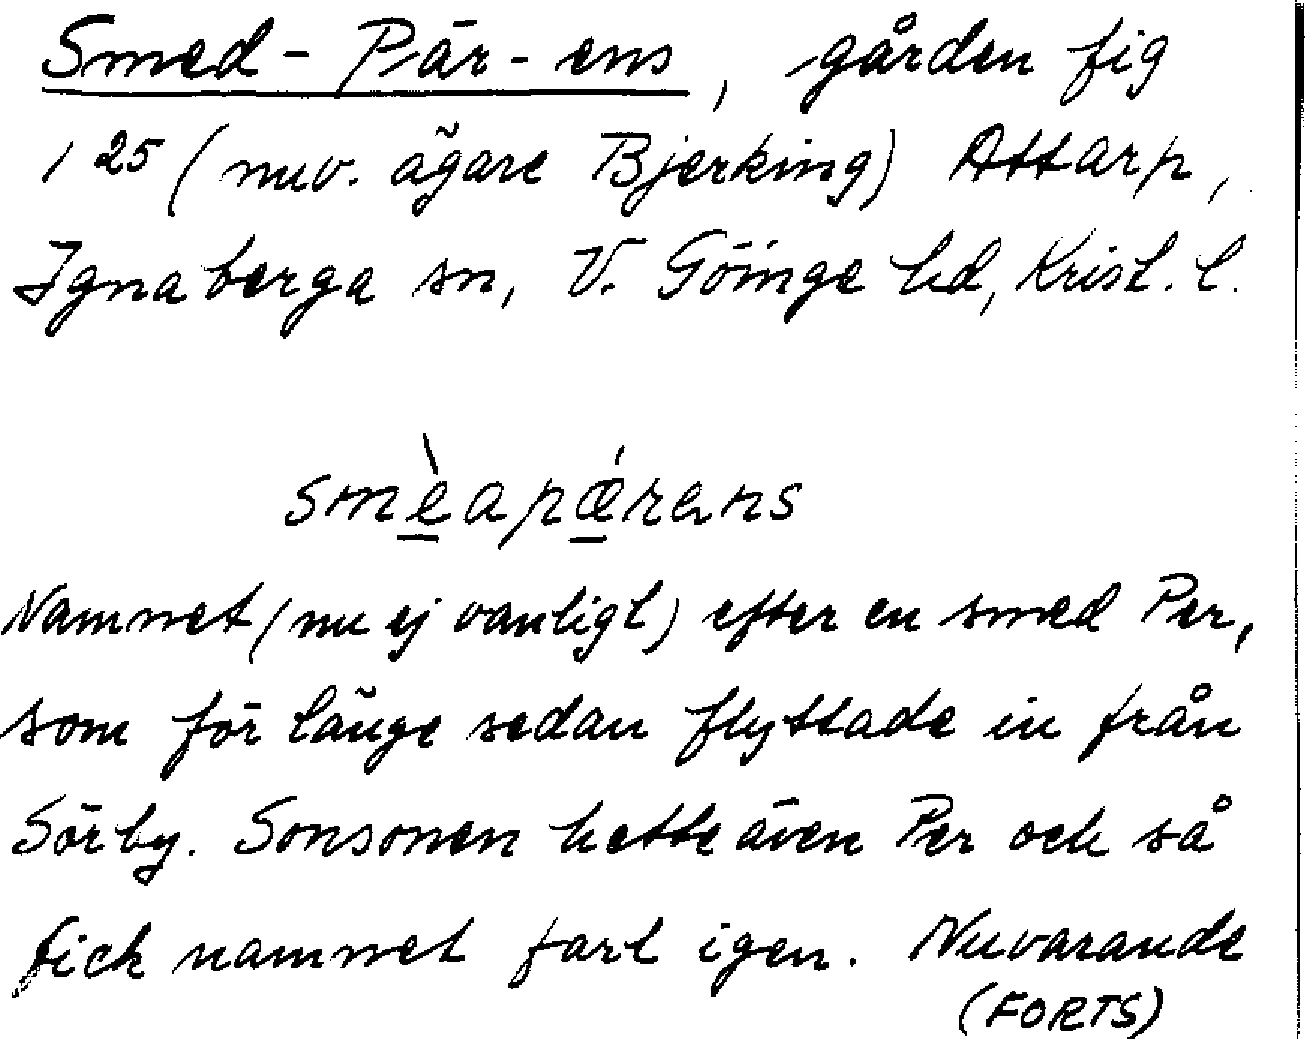 Smed-Pär-ens, gården fig
125 (nuv. ägare Bjerking) Attarp,
Ignaberga sn, V. Göinge hd, Krist. l.
smèapǽrans
Namnet (nu ej vanligt) efter en smed Per,
som för länge sedan flyttade in från
Sörby. Sonsonen hette även Per och så
fick namnet fart igen. Nuvarande
(FORTS)